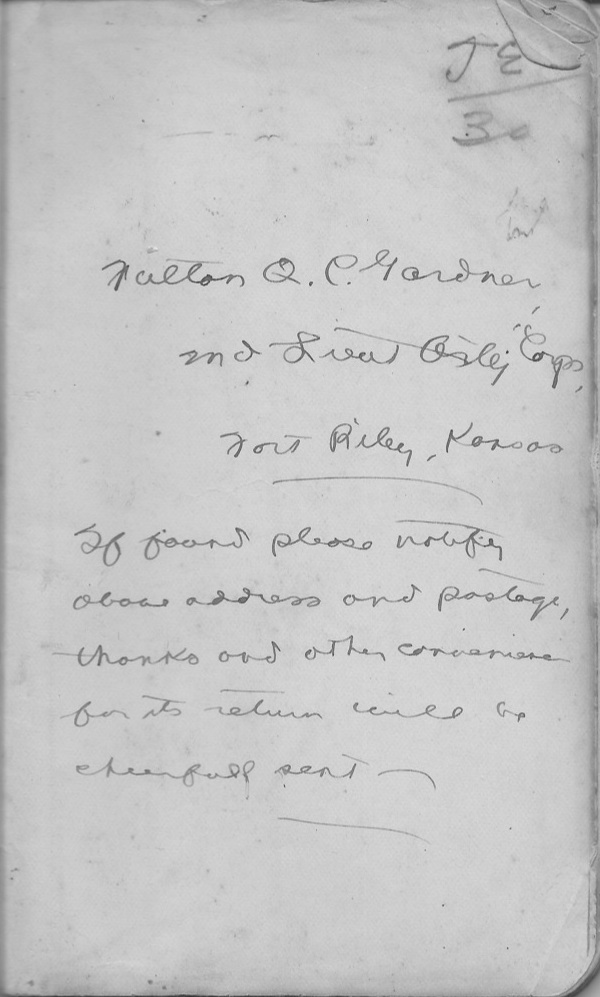 J E
30
Fulton Q. C. Gardner,
2nd Lieut Arty Corps,
Fort Riley, Kansas
If found please notify
above address and postage,
thanks and other convenience
for its return will be
cheerfull sent —